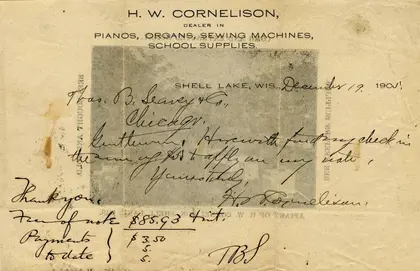 H. W. CORNELISON,
DEALER IN
PIANOS, ORGANS, SEWING MACHINES,
SCHOOL SUPPLIES
SHELL LAKE, WIS., December 19, 190
Thos. B. & Co,
Chicago.
Gentlemen, Herewith find my check in
the sum of to apply on my note,
Yours truly,
H W Cornelison.
Thank you.
Face of note $85.93 & int.
Payments } $3.50
to date } 5.
5.
TBS